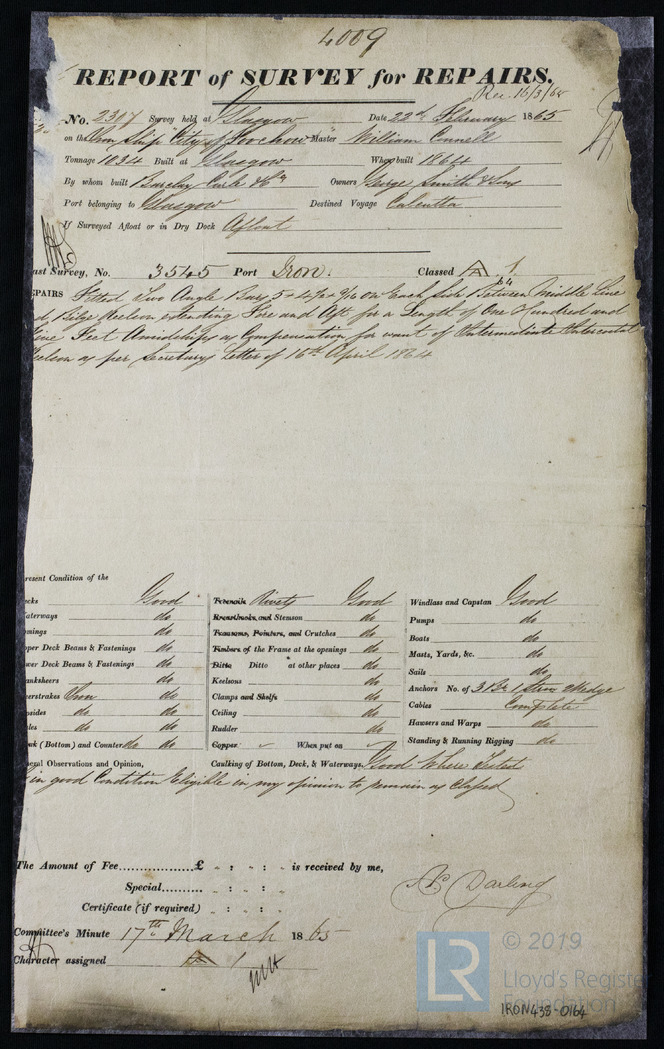 4009
REPORT of SURVEY for REPAIRS.
Rec. 16/3/65
No. 2307 Survey held at Glasgow Date 22nd February 1865
on the Iron Ship "City of Foochow" Master William Connell
Tonnage 1034 Built at Glasgow When built 1864
By whom built Barclay Curle & Co Owners George Smith & Sons
Port belonging to Glasgow Destined Voyage Calcutta
If Surveyed Afloat or in Dry Dock Afloat
ast Survey, No. 3545 Port Iron. Classed A 1
PAIRS Fitted Two Angle Bars 5 x 4½ x 9/16 on Each Side Between Middle Line
d Bilge Keelson extending Fore and Aft for a Length of One Hundred and
ine Feet Amidships as Compensation for want of Intermediate Intercostal
Keelson as per Secretarys Letter of 16th April 1864
resent Condition of the
ecks Good Treenails Rivets Good Windlass and Capstan Good
aterways do Breasthooks and Stemson do Pumps do
enings do Transoms, Pointers, and Crutches do Boats do
pper Deck Beams & Fastenings do Timbers of the Frame at the openings do Masts, Yards, &c. do
wer Deck Beams & Fastenings do Ditto Ditto at other places do Sails do
anksheers do Keelsons do Anchors No. of 3 Br. 1 Stream 2 Kedge
eerstrakes Iron do Clamps and Shelfs do Cables Complete
psides do do Ceiling do Hawsers and Warps do
les do do Rudder do Standing & Running Rigging do
nk (Bottom) and Counter do do Copper ✓ When put on ✓
eral Observations and Opinion, Caulking of Bottom, Deck, & Waterways, Good Where Tested
in good Condition Eligible in my opinion to remain as Classed
The Amount of Fee..................£ „ : „ : „ is received by me,
Special.......... „ : „ : „
Certificate (if required) „ : „ : „
A. Darling
Committee's Minute 17th March 1865
Character assigned A 1
LR © 2019
Lloyd's Register
Foundation
IRON438-0164